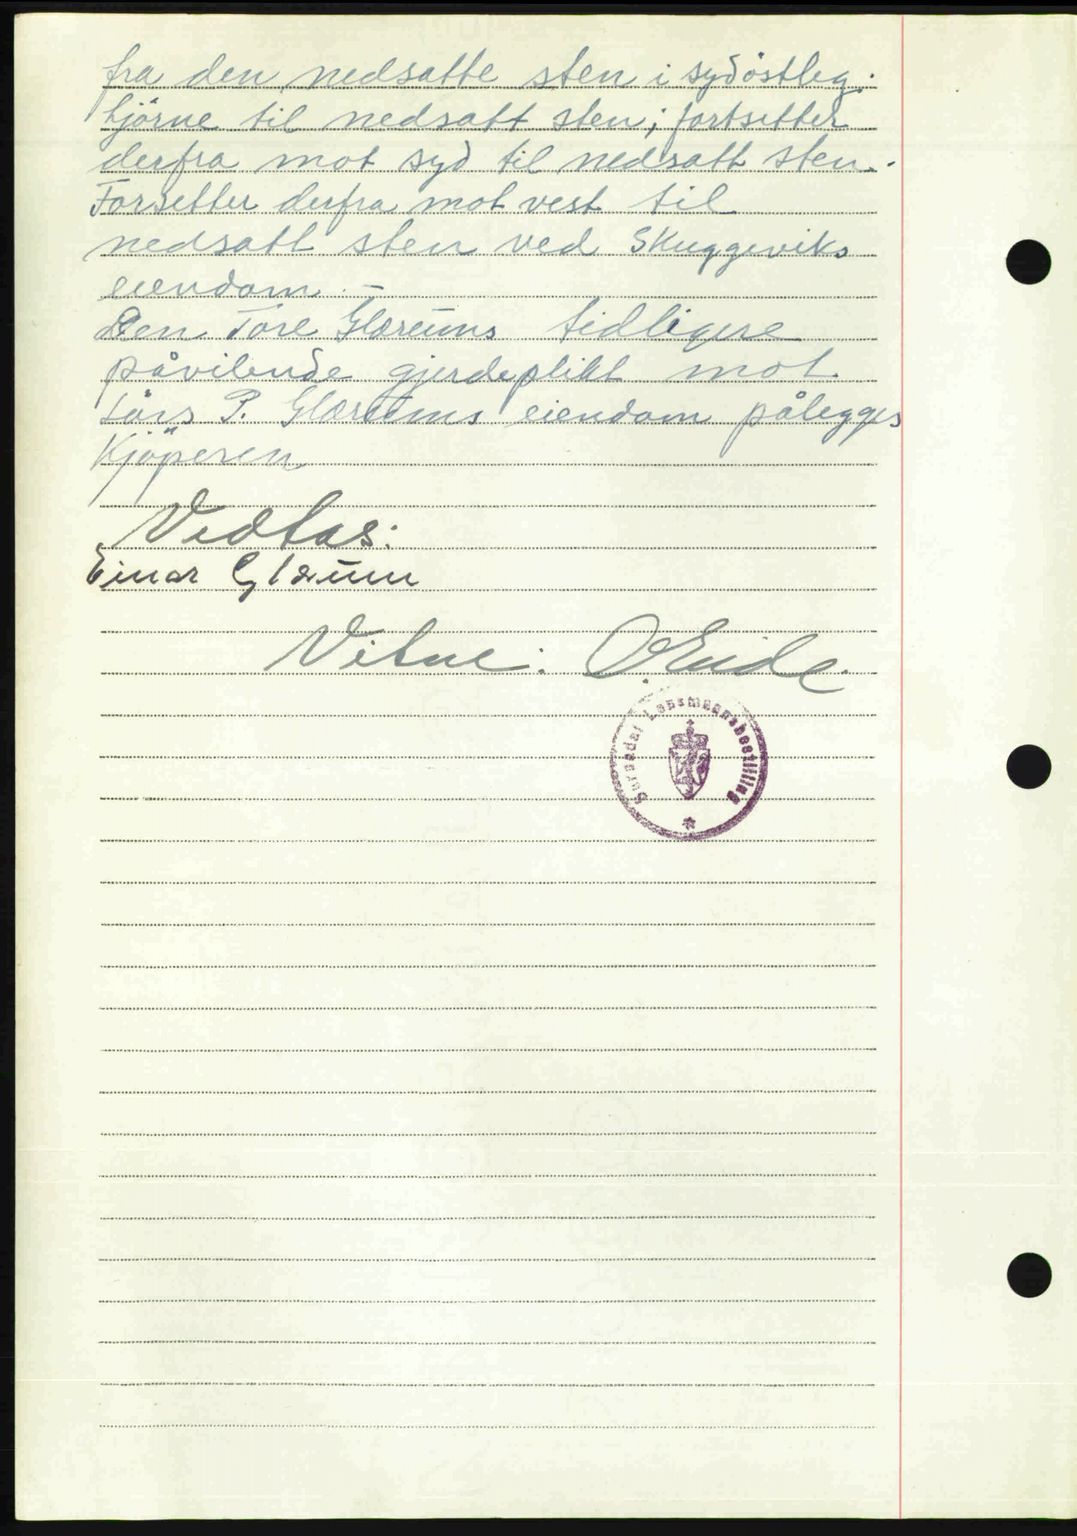 fra den nedsatte sten i sydöstleg.
hjörne til nedsatt sten; fortsetter
derfra mot syd til nedsatt sten.
Forsetter derfra mot vest til
nedsatt sten ved Skuggeviks
eiendom. –
Den Tore Glærums tidligere
påvilende gjerdeplikt mot
Lars P. Glærums eiendom pålegges
Kjöperen
Vedtas:
Einar Glærum
Vitne: O. Eide.
Surndal Lensmannsbestilling